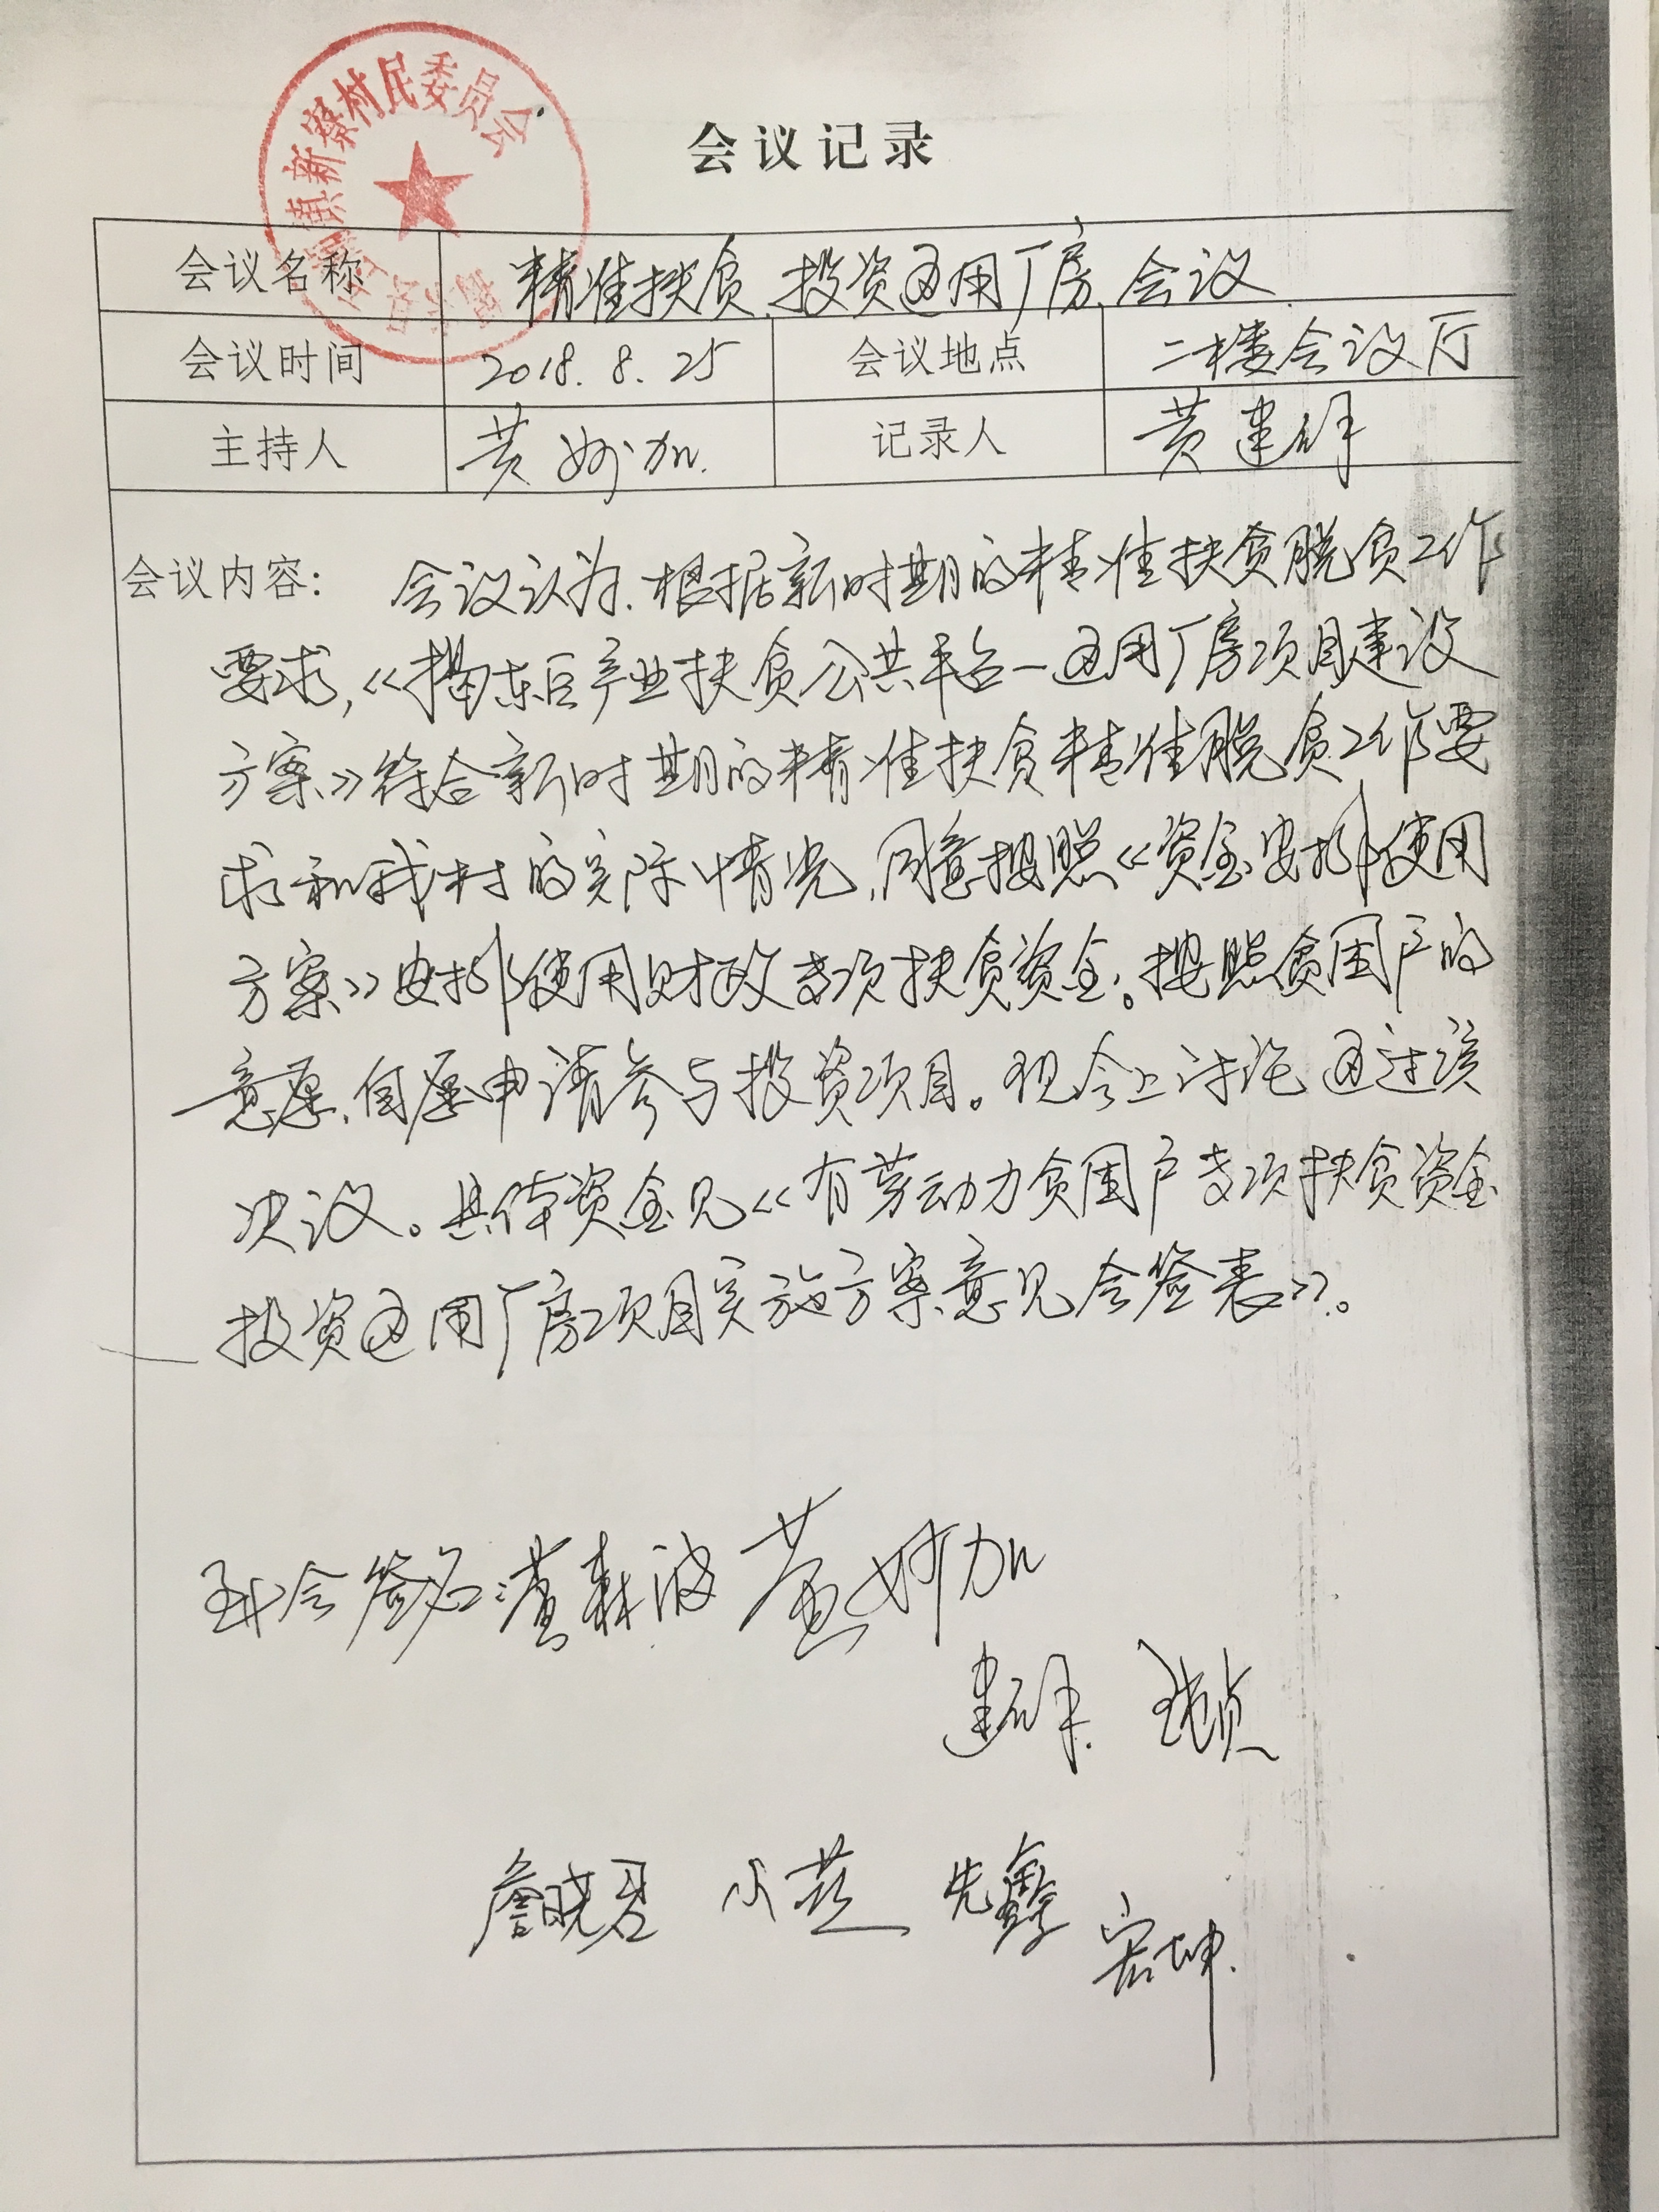 新寮村民委员会
会议记录
会议名称 精准扶贫、投资通用厂房、会议
会议时间 2018.8.25 会议地点 二楼会议厅
主持人 黄妙加 记录人 黄建
会议内容: 会议认为、根据新时期的精准扶贫脱贫工作
要求,《揭东区产业扶贫公共平台—通用厂房项目建设
方案》符合新时期的精准扶贫精准脱贫工作要
求和我村的实际情况,同意按照《资金安排使用
方案》安排使用财政专项扶贫资金。按照贫困户的
意愿、自愿申请参与投资项目。现会上讨论通过该
决议。具体资金见《有劳动力贫困户专项扶贫资金
投资通用厂房项目实施方案意见会签表》。
到会签名:黄森波 黄妙加
建
詹晓君 小燕 先鑫
宏坤